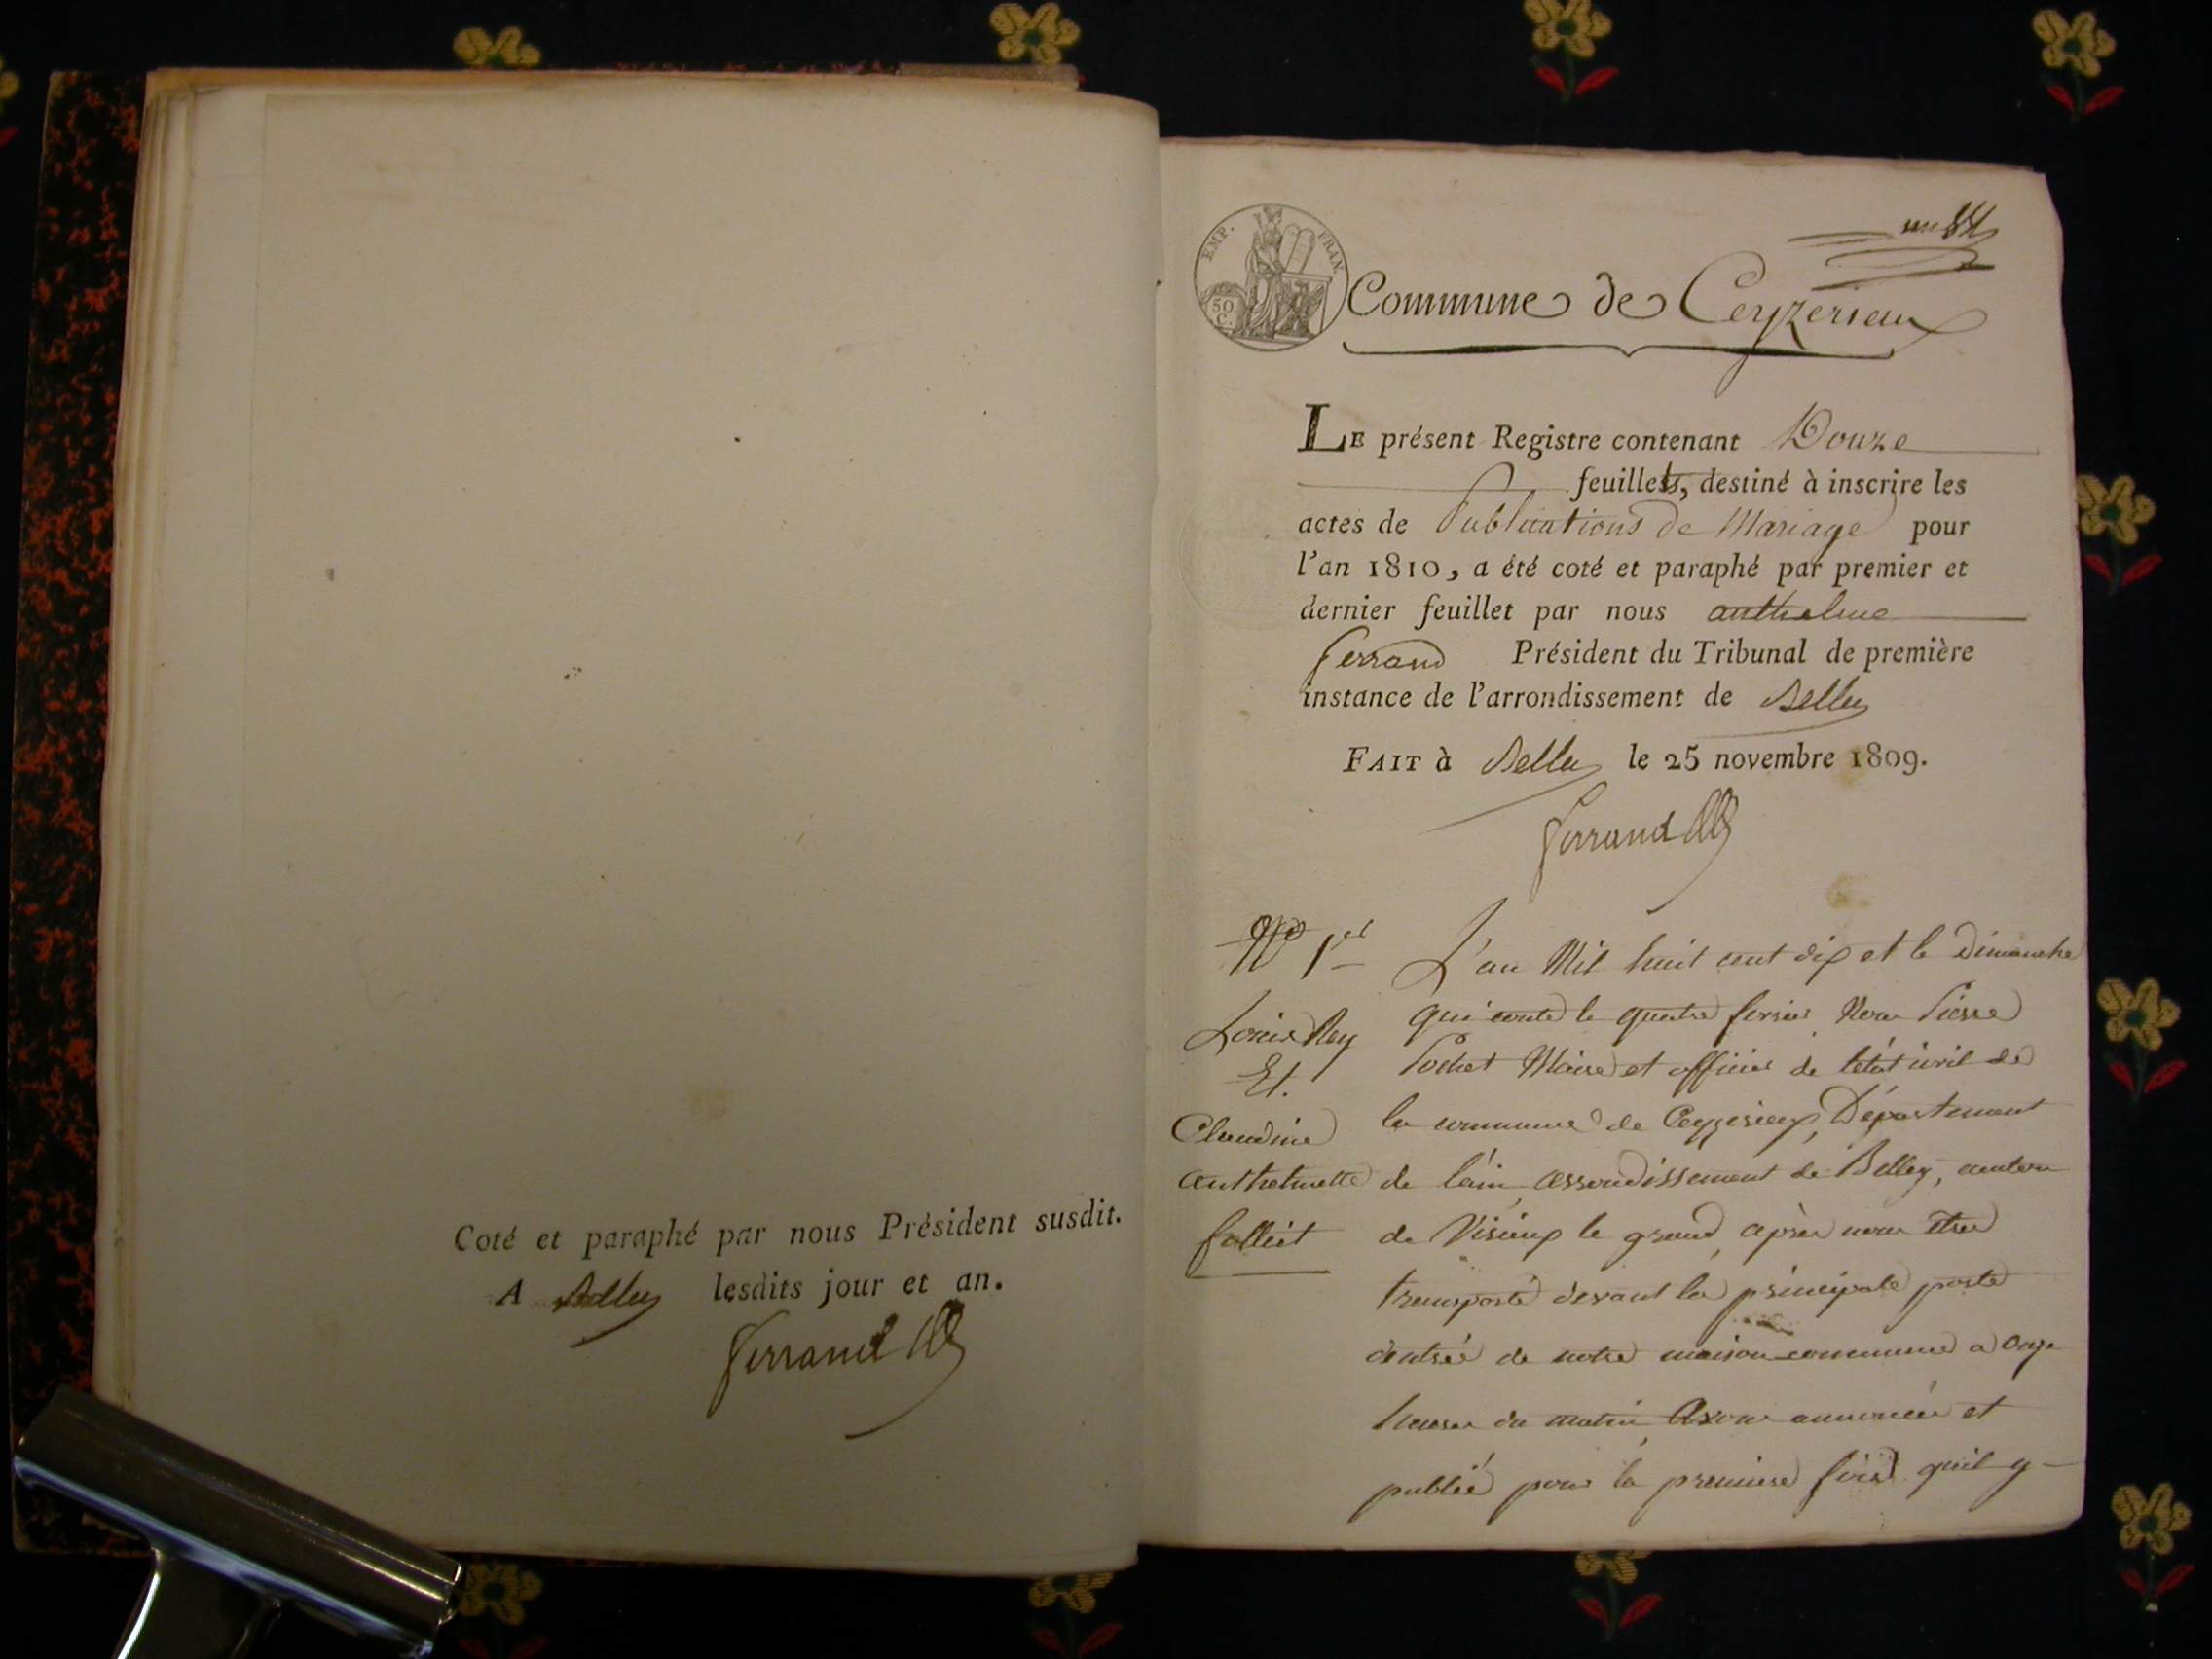 Coté et paraphé par nous Président susdit.
A Belley lesdits jour et an.
Ferrand
EMP. FRAN.
50
C.
Commune de Ceyzerieux
LE présent Registre contenant Douze
feuillets, destiné à inscrire les
actes de Publications de Mariage pour
l'an 1810, a été coté et paraphé par premier et
dernier feuillet par nous anthelme
ferrand Président du Tribunal de première
instance de l'arrondissement de Belley
FAIT à Belley le 25 novembre 1809.
Ferrand
No 1er
Louis Rey
Et.
Claudine
Anthelmette
folliet
L'an Mil huit cent dix et le Dimanche
qui conte le quatre fevrier Nous Pierre
Pochet Maire et officier de letat civil de
la commune de Ceyzerieux, Département
de l'ain, arrondissement de Belley, canton
de Virieux le grand, après nous etre
transporté devant la principale porte
dentrée de notre maison commune a onze
heures du matin, Avons annoncée et
publié pour la premiere fois quil y